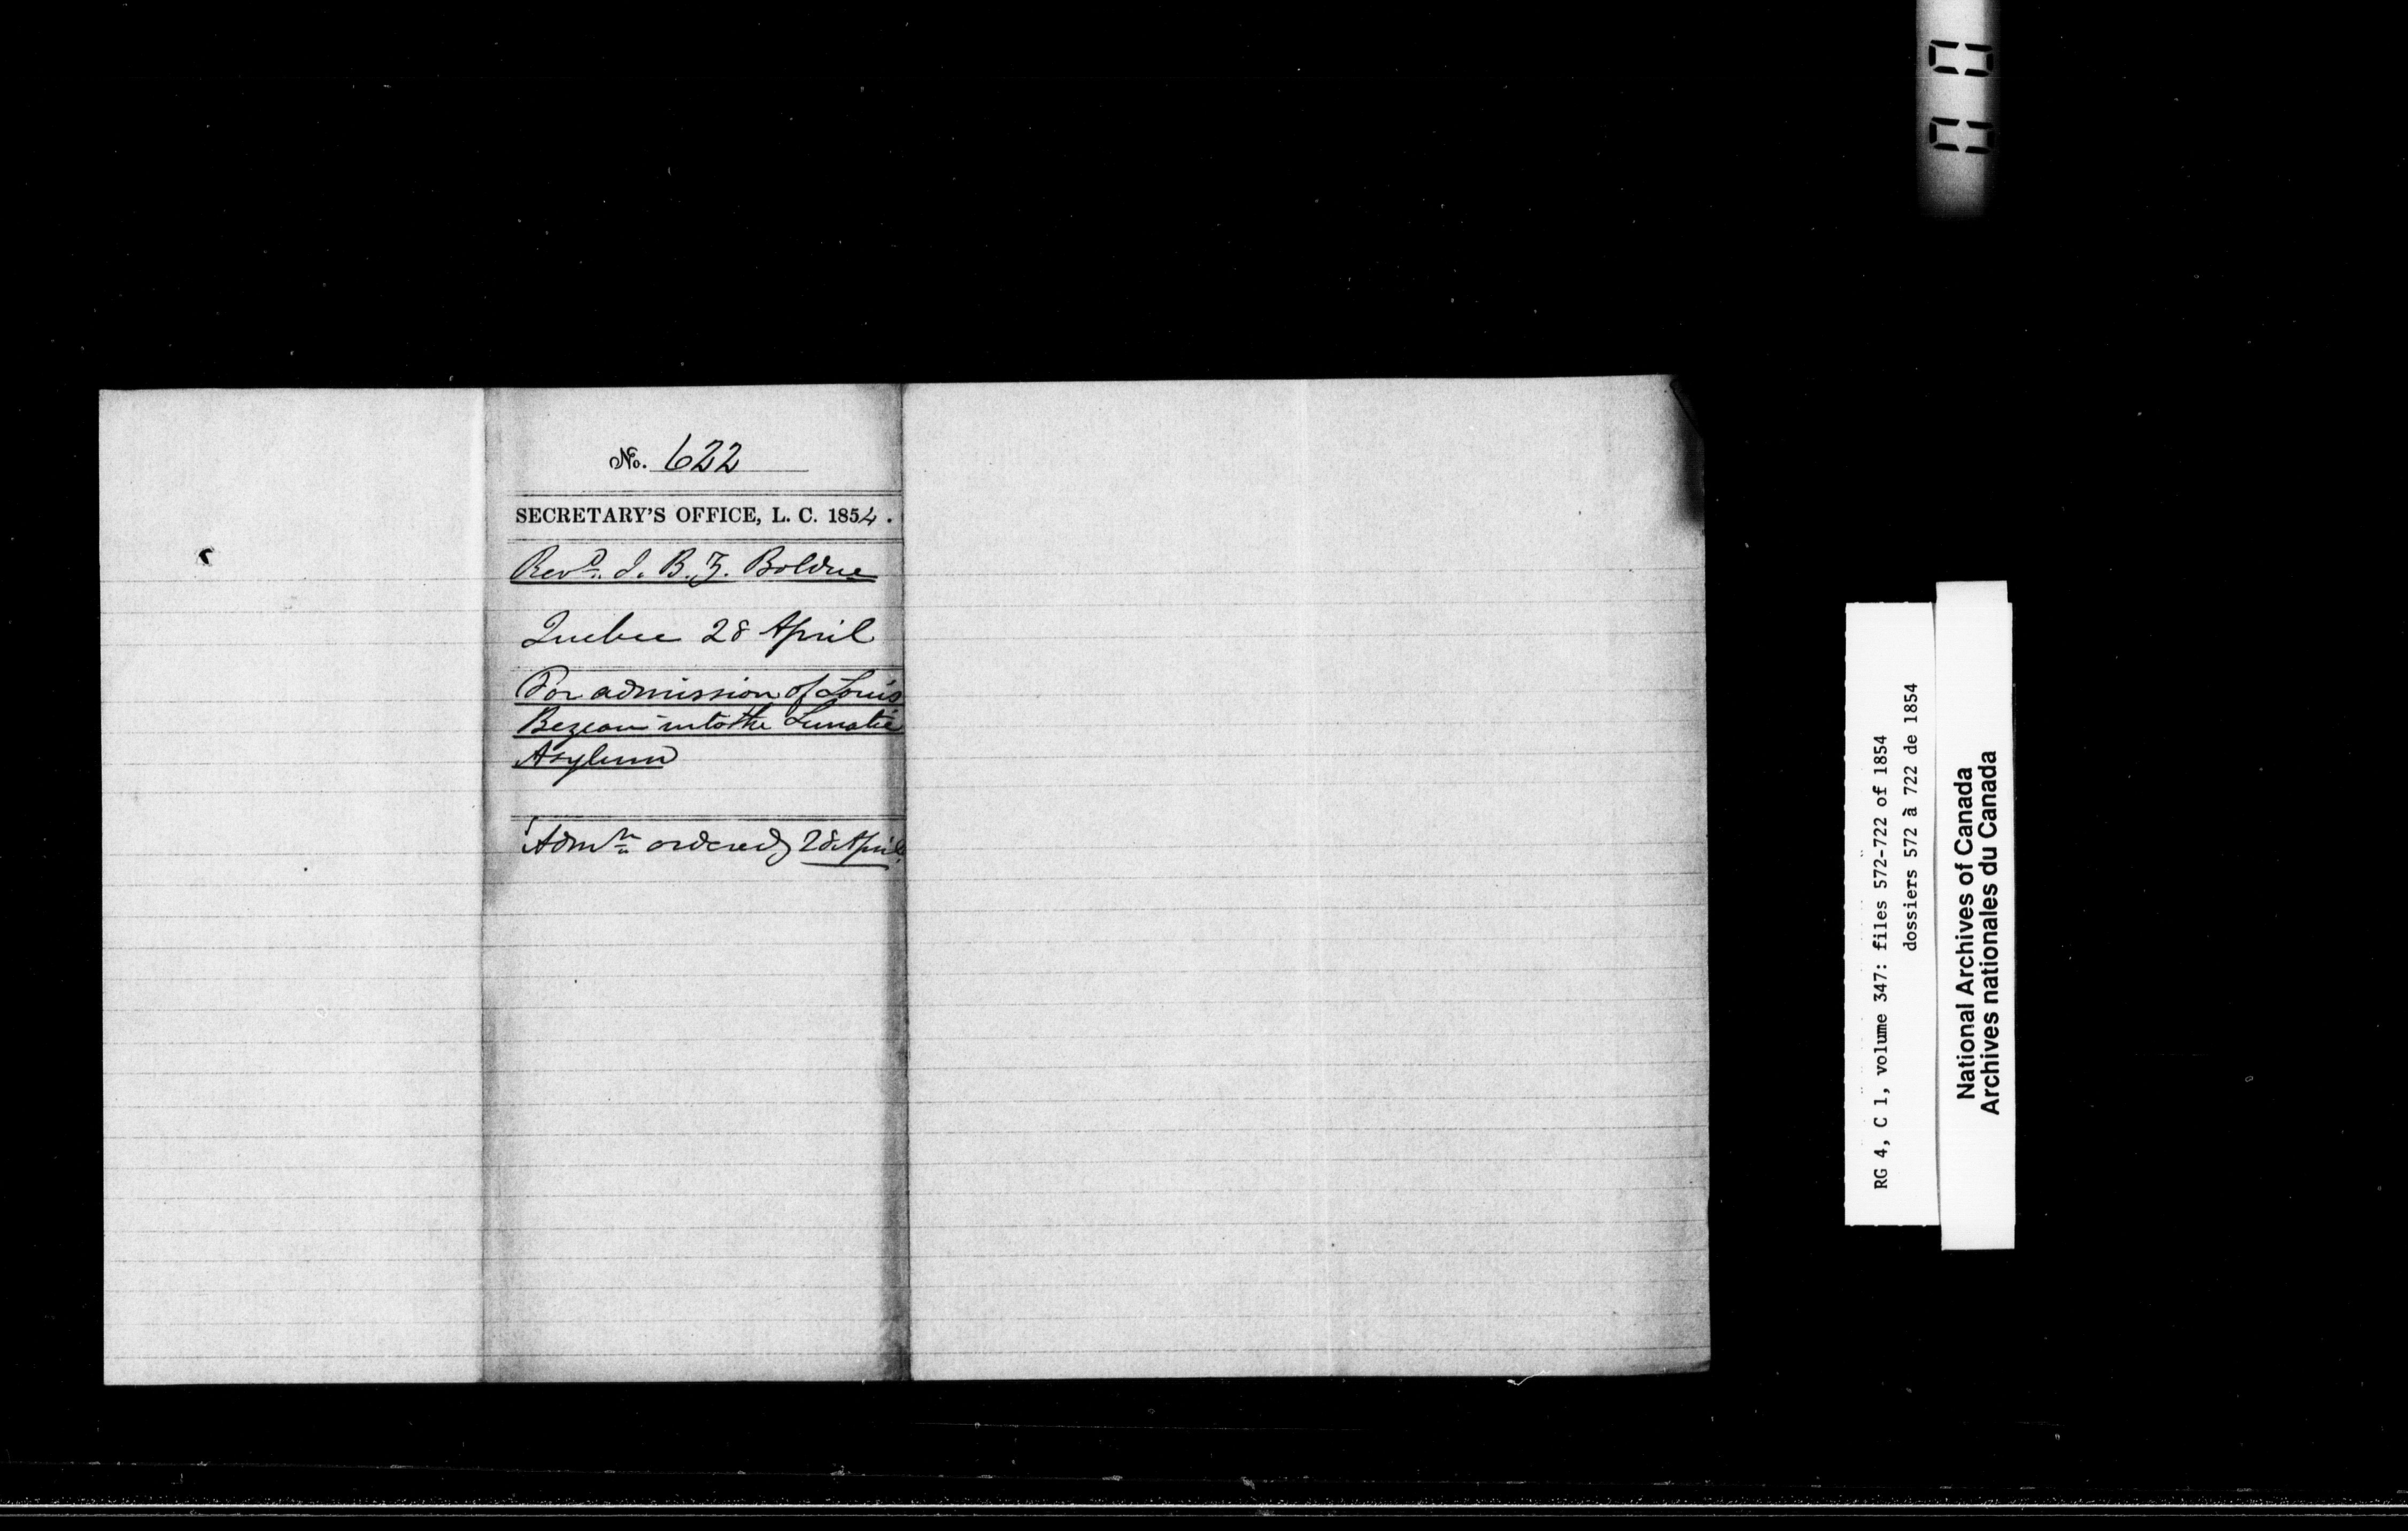 No. 622
SECRETARY'S OFFICE, L. C. 1854.
Revd. J. B. Z. Bolduc
Quebec 28 April
For admission of Louis
Bezeau into the Lunatic
Asylum
Admn ordered 28 April
RG 4, C 1, volume 347: files 572-722 of 1854
dossiers 572 à 722 de 1854
National Archives of Canada
Archives nationales du Canada